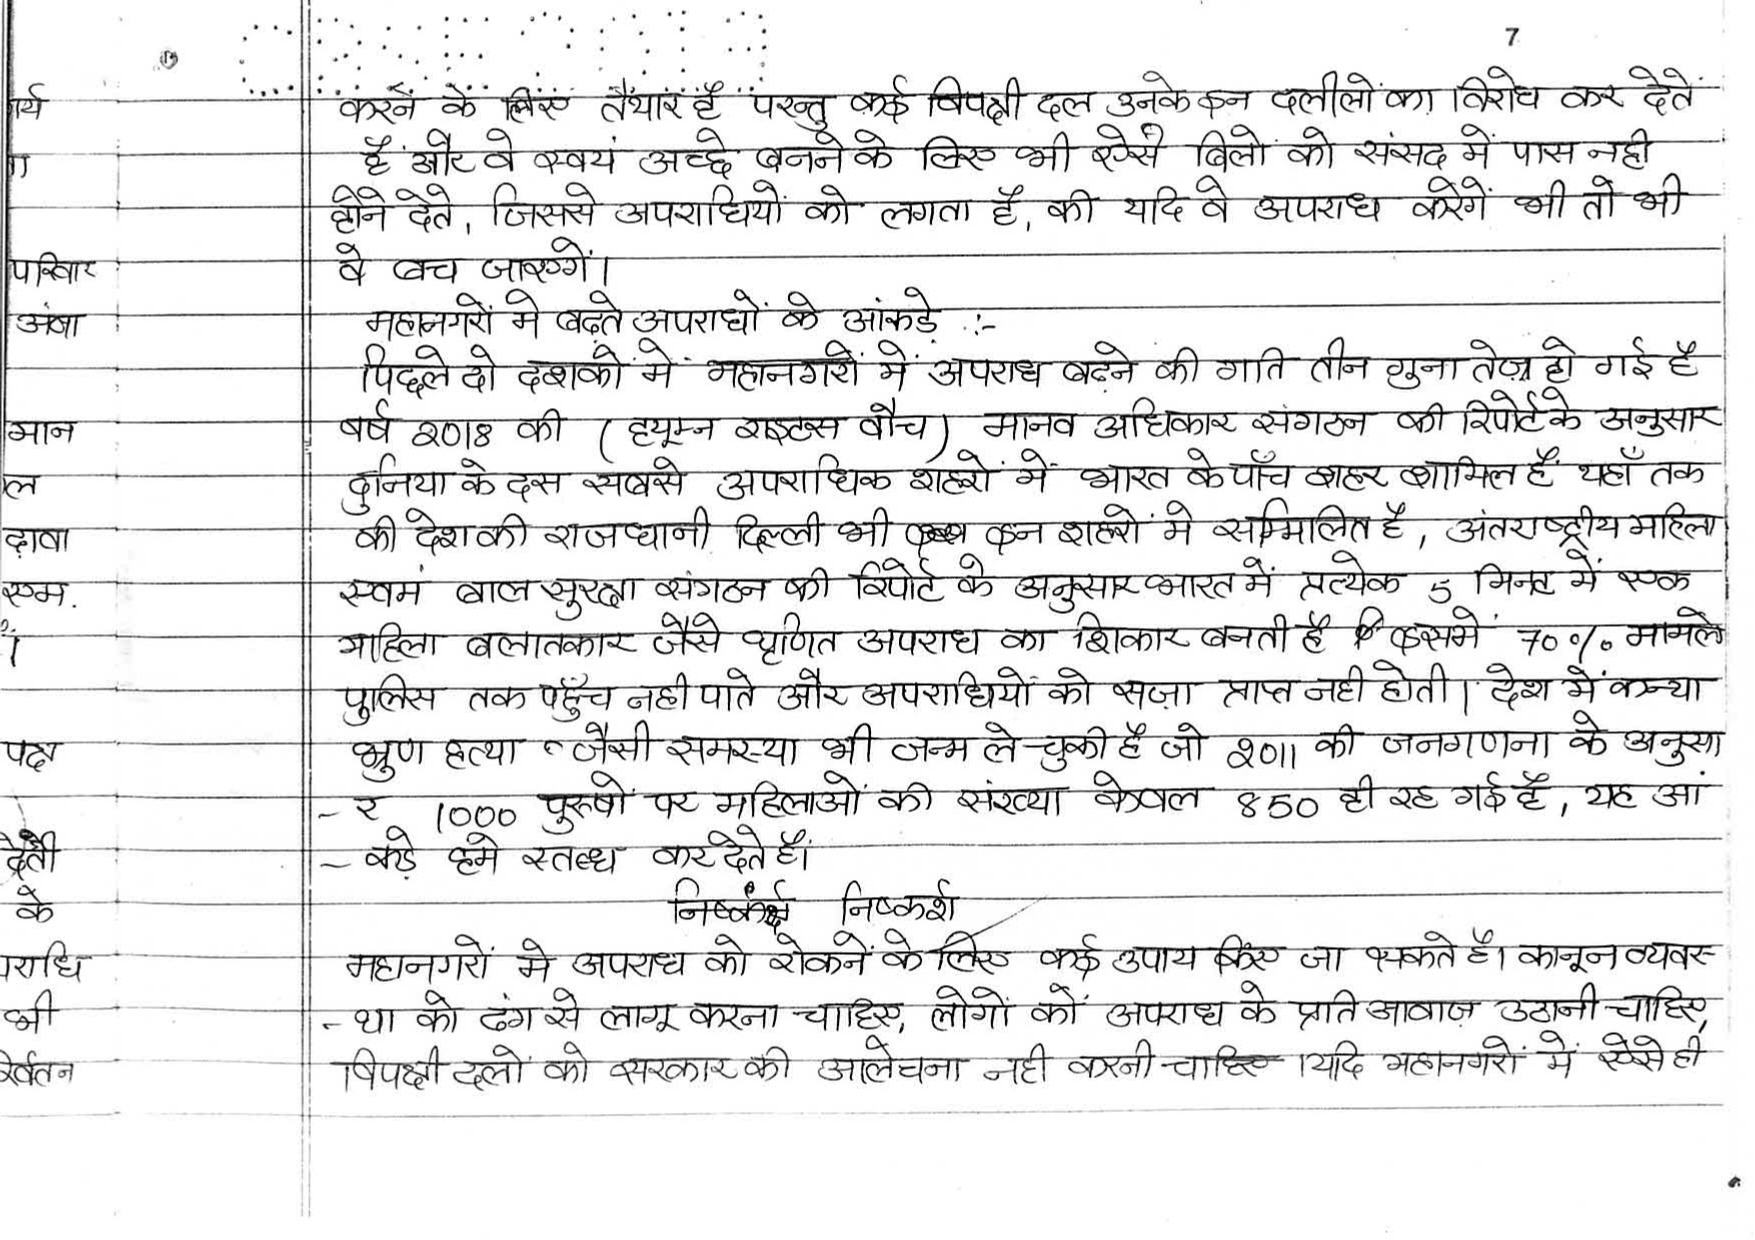 7
करनें के लिए तैयार है परन्तु कई विपक्षी दल उनके इन दलीलों का विरोध कर देते
हैं और वे स्वयं अच्छे बनने के लिए भी ऐसे बिलों को संसद में पास नही
होने देते, जिससे अपराधियों को लगता है, की यदि वे अपराध करेगें भी तो भी
वे बच जाएगें।
महानगरों मे बढ़ते अपराधों के आंकड़े :-
पिछले दो दशको में महानगरों में अपराध बढ़ने की गति तीन गुना तेज़ हो गई है
बर्ष 2018 की (ह्यूम्न राइटस वौच) मानव अधिकार संगठन की रिपोर्ट के अनुसार
दुनिया के दस सबसे अपराधिक शहरों में भारत के पाँच शहर शामिल हैं यहाँ तक
की देश की राजधानी दिल्ली भी इन शहरों मे सम्मिलित है, अंतराष्ट्रीय महिला
एवमं बाल सुरक्षा संगठन की रिपोर्ट के अनुसार भारत में प्रत्येक 5 मिनट में एक
महिला बलातकार जैसे घृणित अपराध का शिकार बनती है इसमें 70% मामले
पुलिस तक पहुँच नही पाते और अपराधियों को सज़ा प्राप्त नही होती। देश में कन्या
भ्रुण हत्या जैसी समस्या भी जन्म ले चुकी है जो 2011 की जनगणना के अनुसा
- र 1000 पुरुषों पर महिलाओं की संख्या केवल 850 ही रह गई है, यह आं
- कड़े हमे स्तब्ध कर देते हैं।
निष्कर्श
महानगरों मे अपराध को रोकनें के लिए कई उपाय किए जा सकते है। कानून व्यवस्
- था को ढंग से लागू करना चाहिए, लोगों कों अपराध के प्रति आवाज़ उठानी चाहिए,
विपक्षी दलों को सरकार की आलेचना नही करनी चाहिए ।यदि महानगरों में ऐसे ही
र्य
ा
परिवार
अंबा
मान
ल
ढ़ावा
एम.
पक्ष
देती
के
पराधि
भी